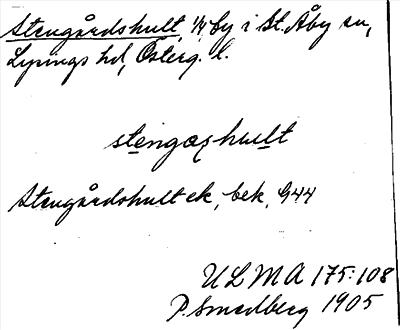 Stengårdshult, by i St. Åby sn,
Lysings hd, Österg. l.
stengæshult
Stengårdshult ek, bek, G44
ULMA 175:108
P. Smedberg 1905